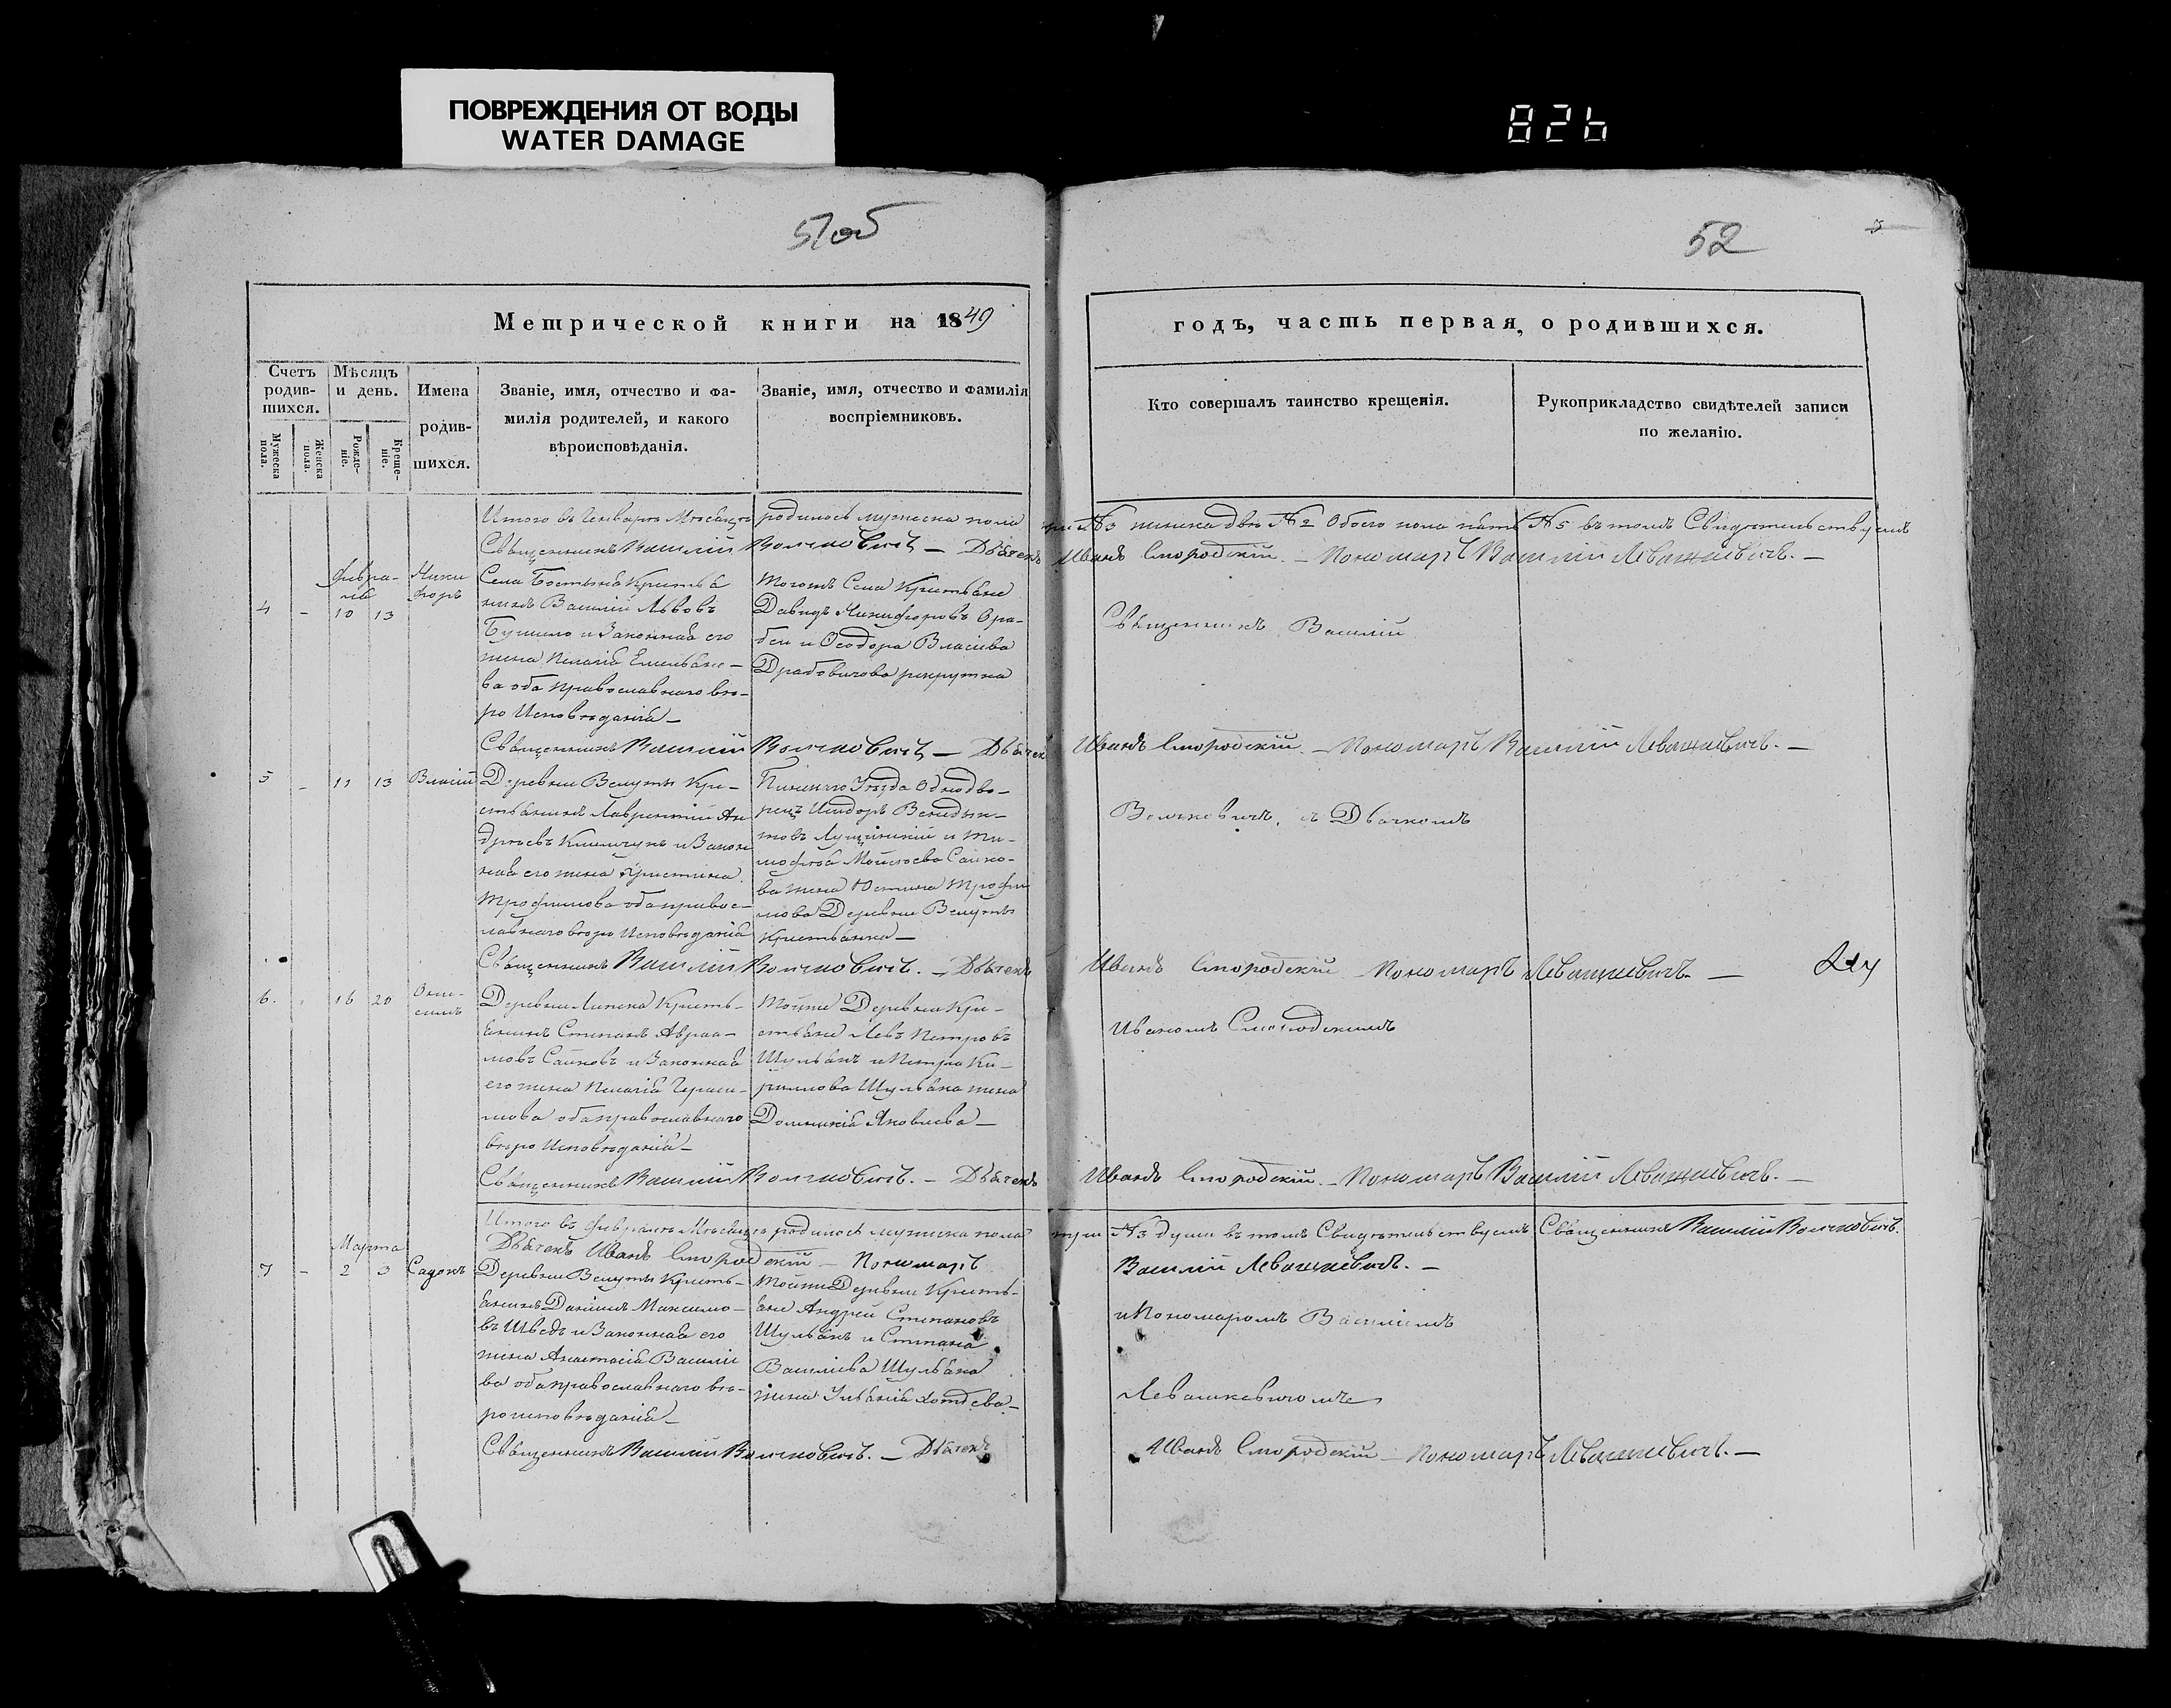 ПОВРЕЖДЕНИЯ ОТ ВОДЫ
WATER DAMAGE
826
51об
52
Метрической книги на 1849
годъ, часть первая, о родившихся.
Счетъ родив-шихся.
Мужеска пола.
Женска пола.
Мѣсяцъ и день.
Рожде-ніе.
Креще-ніе.
Имена
родив-
шихся.
Званіе, имя, отчество и фа-
милія родителей, и какого
вѣроисповѣданія.
Званіе, имя, отчество и фамилія
воспріемниковъ.
Кто совершалъ таинство крещенія.
Рукоприкладство свидѣтелей записи
по желанію.
Итого въ Генварѣ Мѣсяцѣ родилось мужеска пола три №3 женска двѣ №2 Обоего пола пять №5 въ томъ Свидѣтельствуемъ
Священникъ Василій Волчковичъ — Дьячекъ Иванъ Смородскій. — Пономарь Василій Левашкевичъ. —
Февра-
ля
4 - 10 13
Ники
форъ
Села
Кресть
янинъ Василій Львовъ
и Законная его
жена Пелагія Емельяно-
ва оба православнаго вѣ-
ро Исповѣданія —
Тогожъ Села Крестьяне
Давидъ Никифоровъ
и Ѳеодора Власіева
Драбовичова рекрутка
Священникъ Василій
Священникъ Василій Волчковичъ — Дьячек Иванъ Смородскій. — Пономарь Василій Левашкевичъ. —
5 - 11 13 Власій
Деревни Велуты Кре-
стьянинъ Лаврентій Ан
дреевъ и Закон
ная его жена Христина
Трофимова оба правос-
лавнаго вѣро Исповѣданія
Пинскаго Уѣзда Однодво-
рецъ Исидоръ Венедик-
товъ и Ти-
мофея Моисеева Сачко-
ва жена Юстина Трофи
мова Деревни Велуты
Крестьянка —
Волчковичъ, съ Дьячкомъ
Священникъ Василій Волчковичъ. — Дьячекъ Иванъ Смородскій Пономарь Левашкевичъ. —
6. 16 20
Они-
симъ
Деревни Липска Кресть-
янинъ Степанъ Авраа-
мовъ Сачковъ и Законная
его жена Пелагія Гераси-
мова оба православнаго
вѣро Исповѣданія —
Тойже Деревни Кре-
стьяне Левъ Петровъ
Шульякъ и Петра Ки-
рилова Шульяка жена
Домникія Яковлева —
Иваномъ Смородскимъ
Священникъ Василій Волчковичъ. — Дьячекъ Иванъ Смородскій. — Пономарь Василій Левашкевичъ. —
Итого въ Февралѣ Мѣсяцѣ родилось мужеска пола три №3 души въ томъ Свидѣтельствуемъ Священникъ Василій Волчковичъ.
Дьячекъ Иванъ Смородскій — Пономарь Василій Левашкевичъ. —
Марта
7 - 2 3 Садокъ
Деревни Велуты Кресть-
янинъ Даніилъ Максимо-
въ Шведъ и Законная его
жена Анастасія Василіе
ва оба православнаго вѣ-
ро исповѣданія —
Тойже Деревни Кресть-
яне Андрей Степановъ
Шульякъ и Степана
Василіева Шульяка
жена Ульянія
и Пономаромъ Василіемъ
Левашкевичомъ
Священникъ Василій Волчковичъ. — Дьячекъ Иванъ Смородскій — Пономарь Левашкевичъ. —